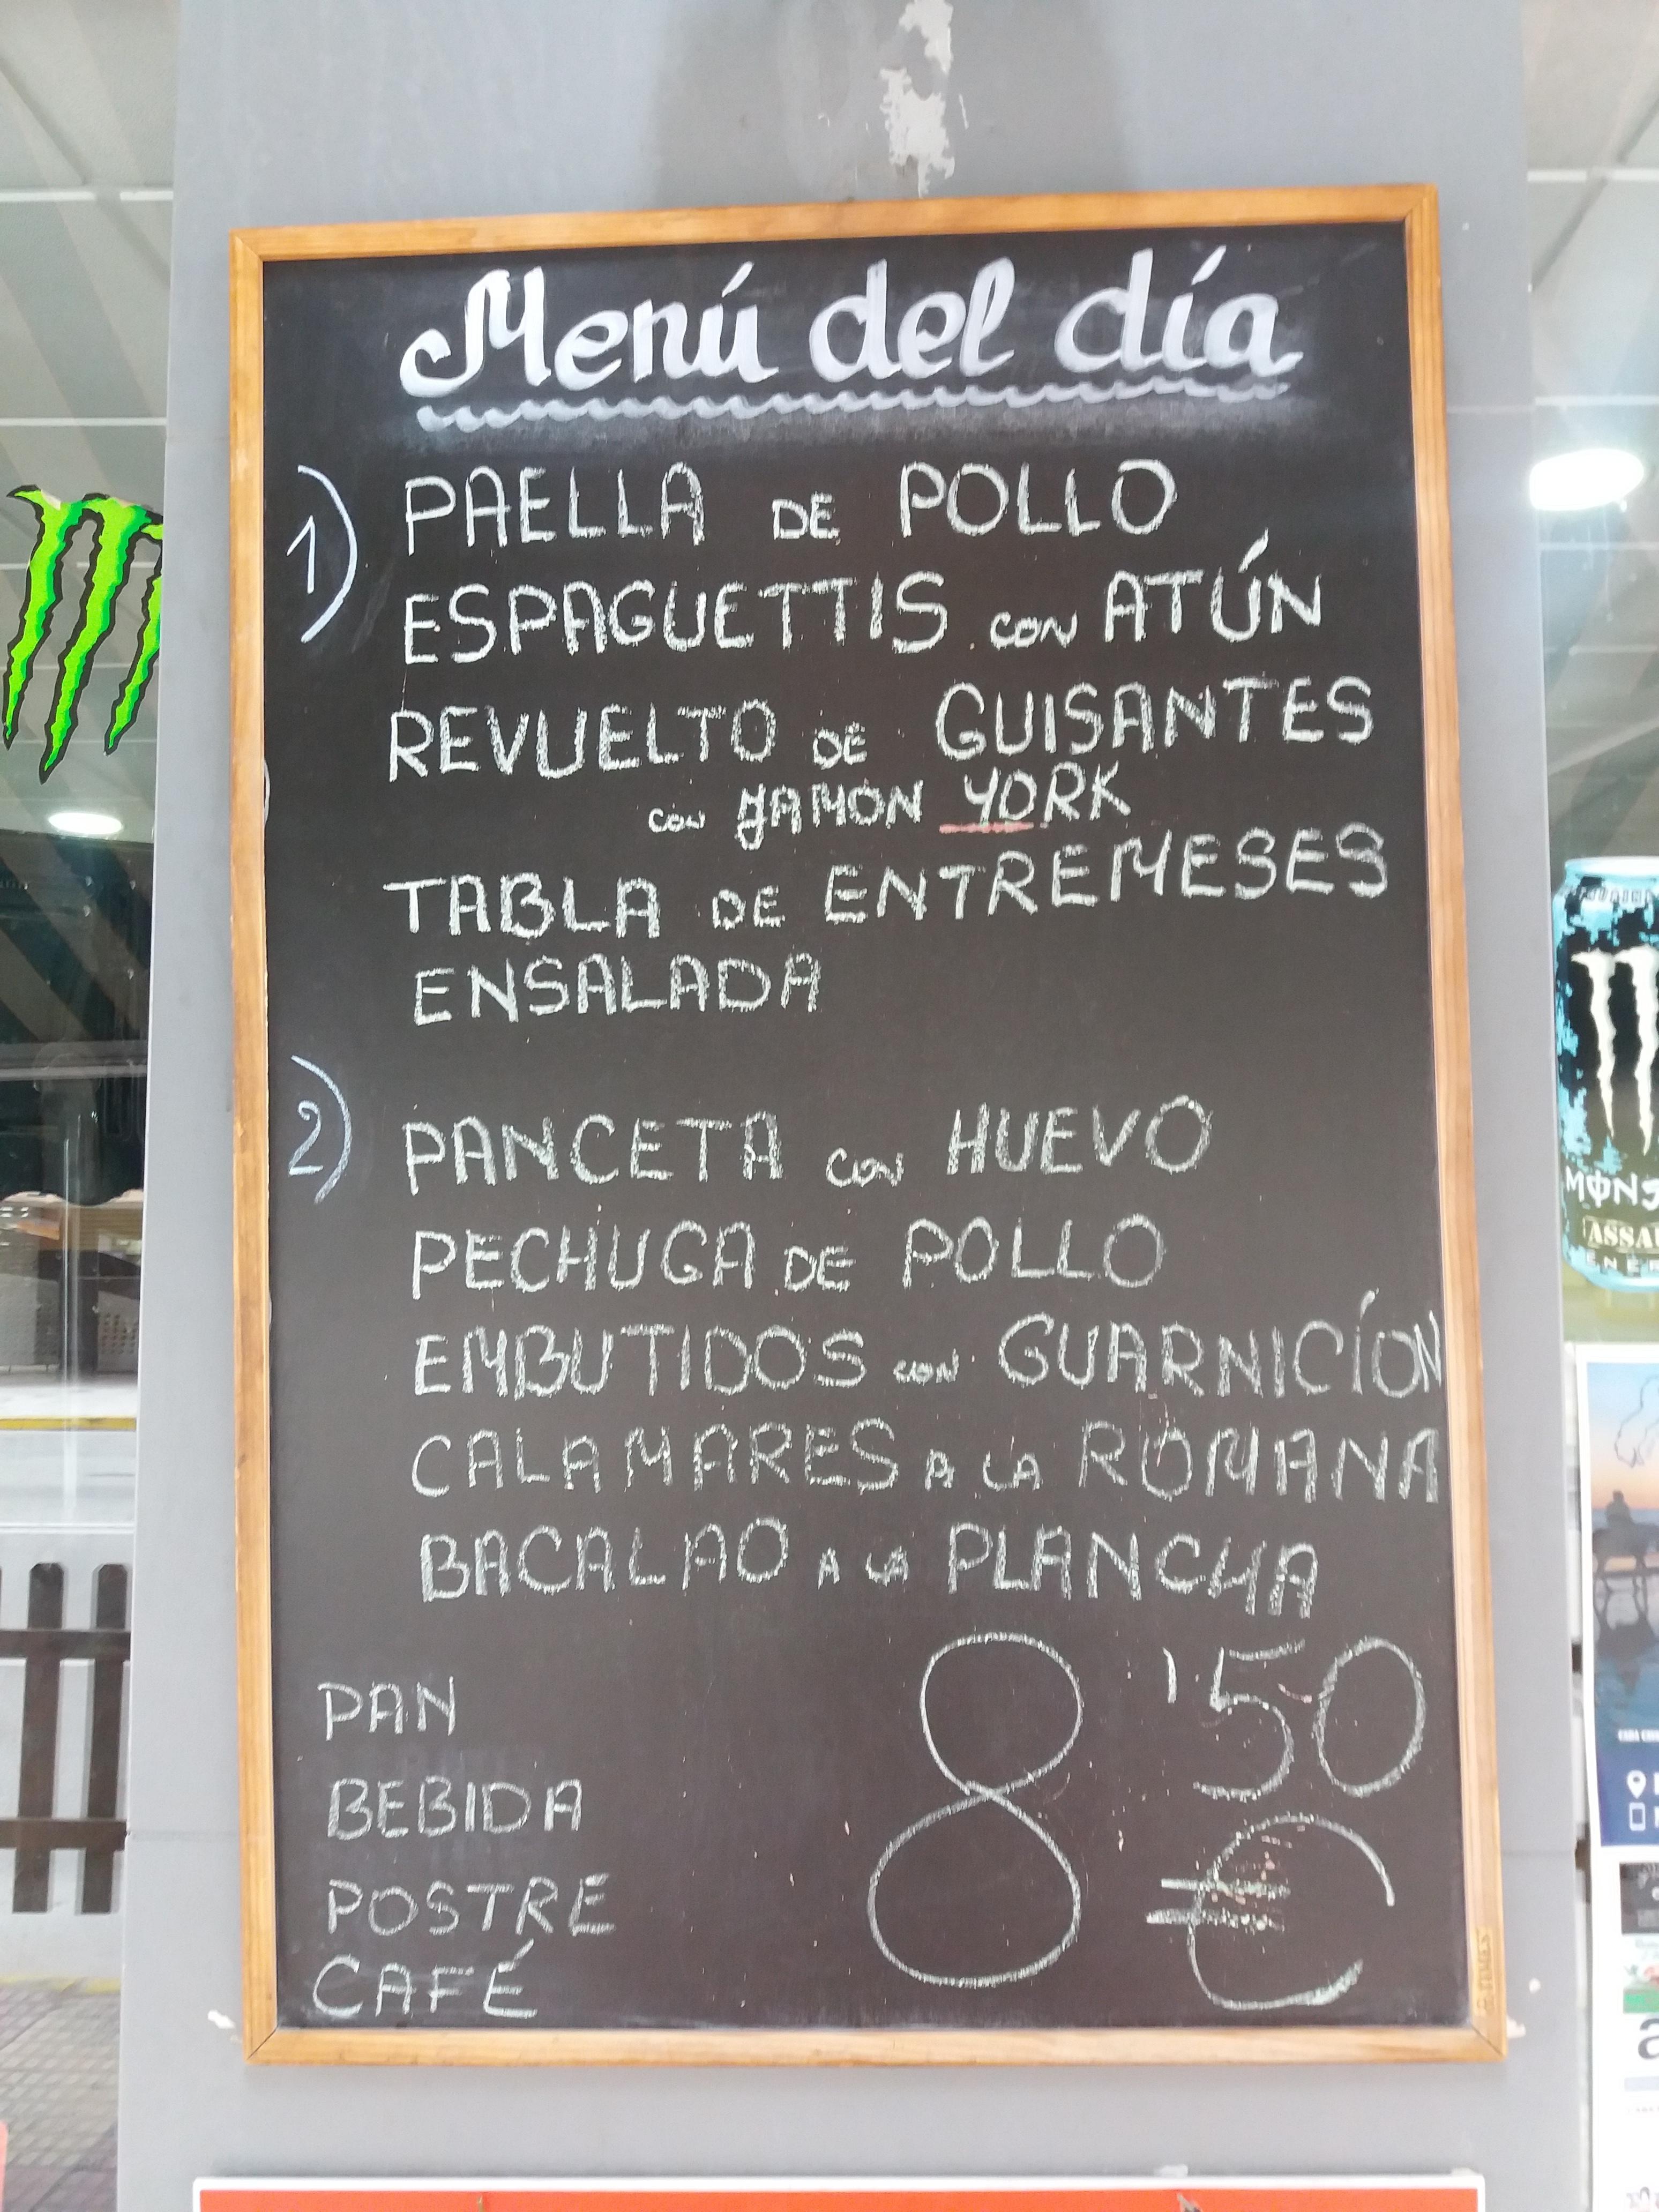 Menú del día
1) PAELLA DE POLLO
ESPAGUETTIS con ATÚN
REVUELTO DE GUISANTES
con JAMÓN YORK
TABLA DE ENTREMESES
ENSALADA
2) PANCETA con HUEVO
PECHUGA DE POLLO
EMBUTIDOS con GUARNICÍON
CALAMARES A LA ROMANA
BACALAO A LA PLANCHA
PAN
BEBIDA
POSTRE
CAFÉ
8'50
€